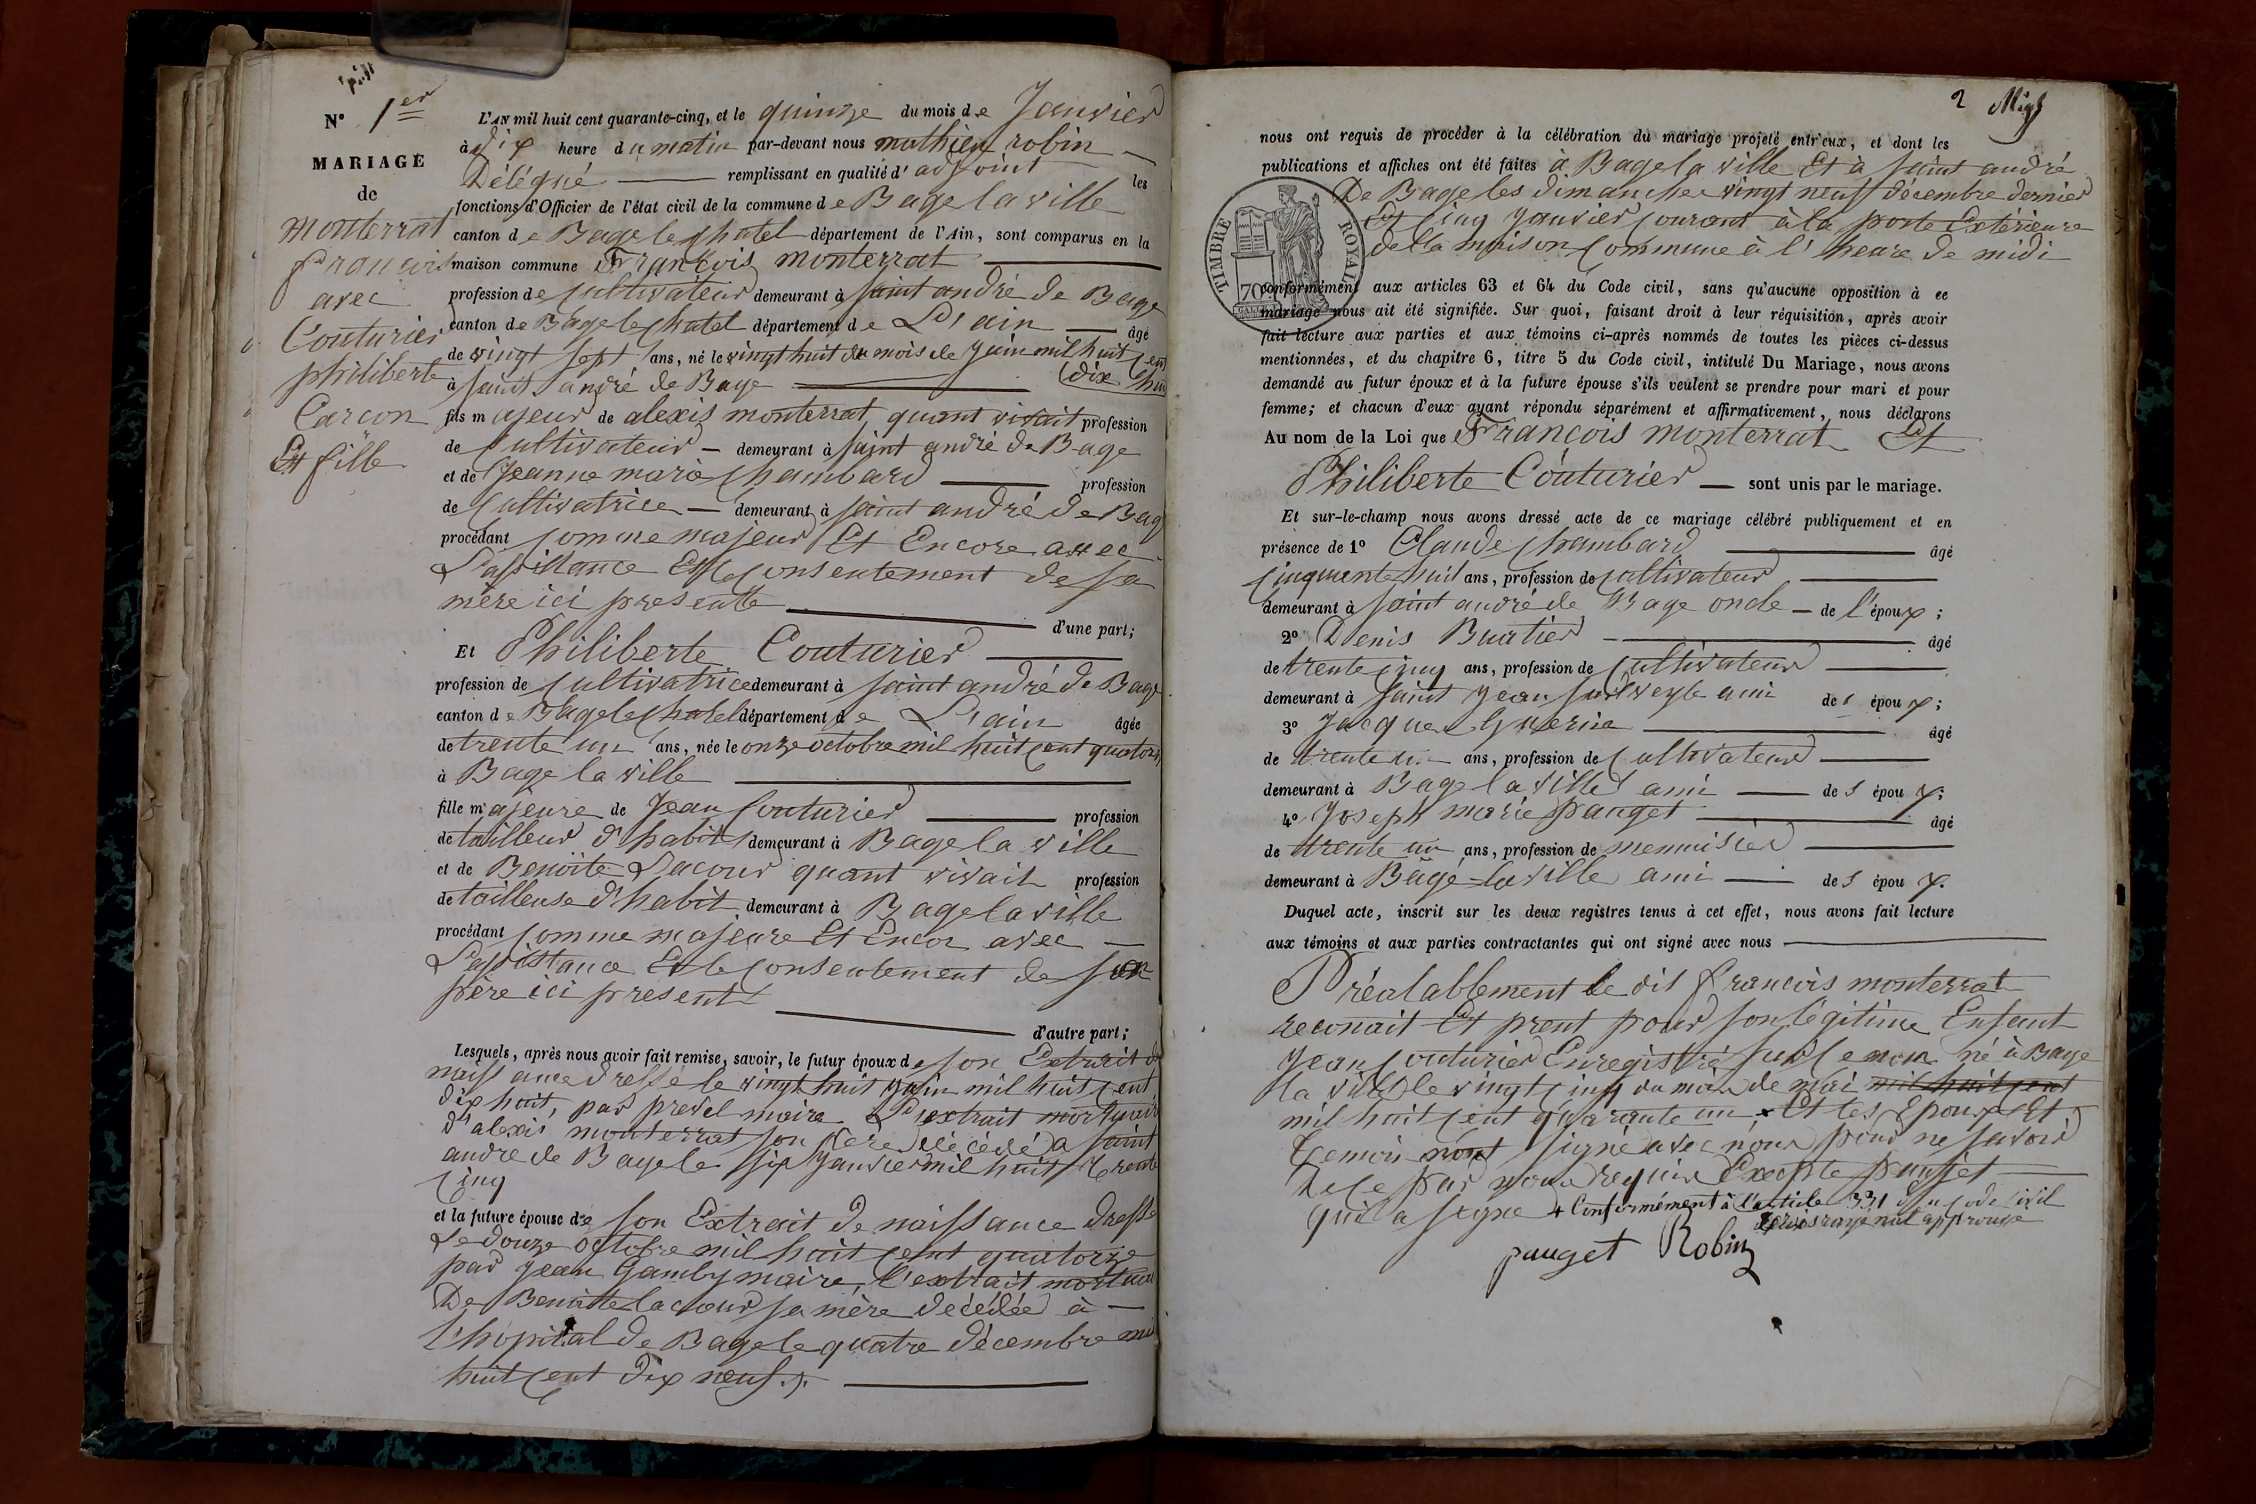 N° 1er
MARIAGE
de
Monterrat
François
avec
Couturier
philiberte
Garçon
Et fille
L'AN mil huit cent quarante-cinq, et le quinze du mois de Janvier
à dix heure du matin par-devant nous mathieu robin
Délégué remplissant en qualité d'adjoint les
fonctions d'Officier de l'état civil de la commune de Bage la ville
canton de Bage le chatel département de l'Ain, sont comparus en la
maison commune François monterrat
profession de cultivateur demeurant à saint andré de Bage
canton de Bage le chatel département de L'ain âgé
de vingt sept ans, né le vingt huit du mois de Juin mil huit cent
à saint andré de Bage (dix huit
fils majeur de alexis monterrat quant vivait profession
de cultivateur demeurant à saint andré de Bage
et de Jeanne marie chambard profession
de cultivatrice demeurant à saint andré de Bage
procédant comme majeur Et Encore avec
L'assistance Et le consentement de sa
mère ici presente
d'une part;
Et Philiberte Couturier
profession de cultivatrice demeurant à saint andré de Bage
canton de Bage le chatel département de L'ain âgée
de trente un ans, née le onze octobre mil huit cent quatorze
à Bage la ville
fille majeure de Jean Couturier profession
de tailleur d'habit demeurant à Bage la ville
et de Benoite Lacour quant vivait profession
de tailleuse d'habit demeurant à Bage la ville
procédant comme majeure Et Encor avec
L'assistance Et le consentement de son
père ici present
d'autre part;
Lesquels, après nous avoir fait remise, savoir, le futur époux de son Extrait de
naissance dressé le vingt huit Juin mil huit cent
dix huit, par prevel maire L'extrait mortuaire
d'alexis monterrat son père décédé a saint
andre de Bage le six Janvier mil huit trente
cinq
et la future épouse de son Extrait de naissance dressé
Le douze octobre mil huit cent quatorze
par Jean Gambymaire, l'extrait mortuaire
De Benoitte lacour sa mère décédée à
L'hôpital de Bage le quatre décembre mil
huit cent dix neuf.
2
nous ont requis de procéder à la célébration du mariage projeté entr'eux, et dont les
publications et affiches ont été faites à Bage la ville Et à saint andré
De Bage les dimanche vingt neuf décembre dernier
Et cinq Janvier courant à la porte Extérieure
de la maison commune à l'heure de midi
TIMBRE ROYAL
70
conformément aux articles 63 et 64 du Code civil, sans qu'aucune opposition à ce
mariage nous ait été signifiée. Sur quoi, faisant droit à leur réquisition, après avoir
fait lecture aux parties et aux témoins ci-après nommés de toutes les pièces ci-dessus
mentionnées, et du chapitre 6, titre 5 du Code civil, intitulé Du Mariage, nous avons
demandé au futur époux et à la future épouse s'ils veulent se prendre pour mari et pour
femme; et chacun d'eux ayant répondu séparément et affirmativement, nous déclarons
Au nom de la Loi que François monterrat Et
Philiberte Couturier sont unis par le mariage.
Et sur-le-champ nous avons dressé acte de ce mariage célébré publiquement et en
présence de 1° Claude chambard âgé
cinquante huit ans, profession de cultivateur
demeurant à saint andré de Bage oncle de l'époux;
2° Denis Buatier âgé
de trente cinq ans, profession de cultivateur
demeurant à saint Jean sur veyle ami des époux;
3° Jacque Guerin âgé
de trente un ans, profession de cultivateur
demeurant à Bage la ville ami des époux;
4° Joseph marie pauget âgé
de trente un ans, profession de mennisier
demeurant à Bagé-la ville ami des époux.
Duquel acte, inscrit sur les deux registres tenus à cet effet, nous avons fait lecture
aux témoins et aux parties contractantes qui ont signé avec nous
Préalablement le dit francois monterrat
reconait Et prent pour son légitime Enfant
Jean couturier Enregistré sur ce nom né à Bage
la ville le vingt cinq du mois de mai mil huit cent
mil huit cent quarante un + Et les Epoux Et
temoin nont signé avec nous pour ne savoir
De ce par nous requis Excepte pauget
qui a signe + Conformément à l'article 331 du code civil
rayé nul approuvé
pauget Robin